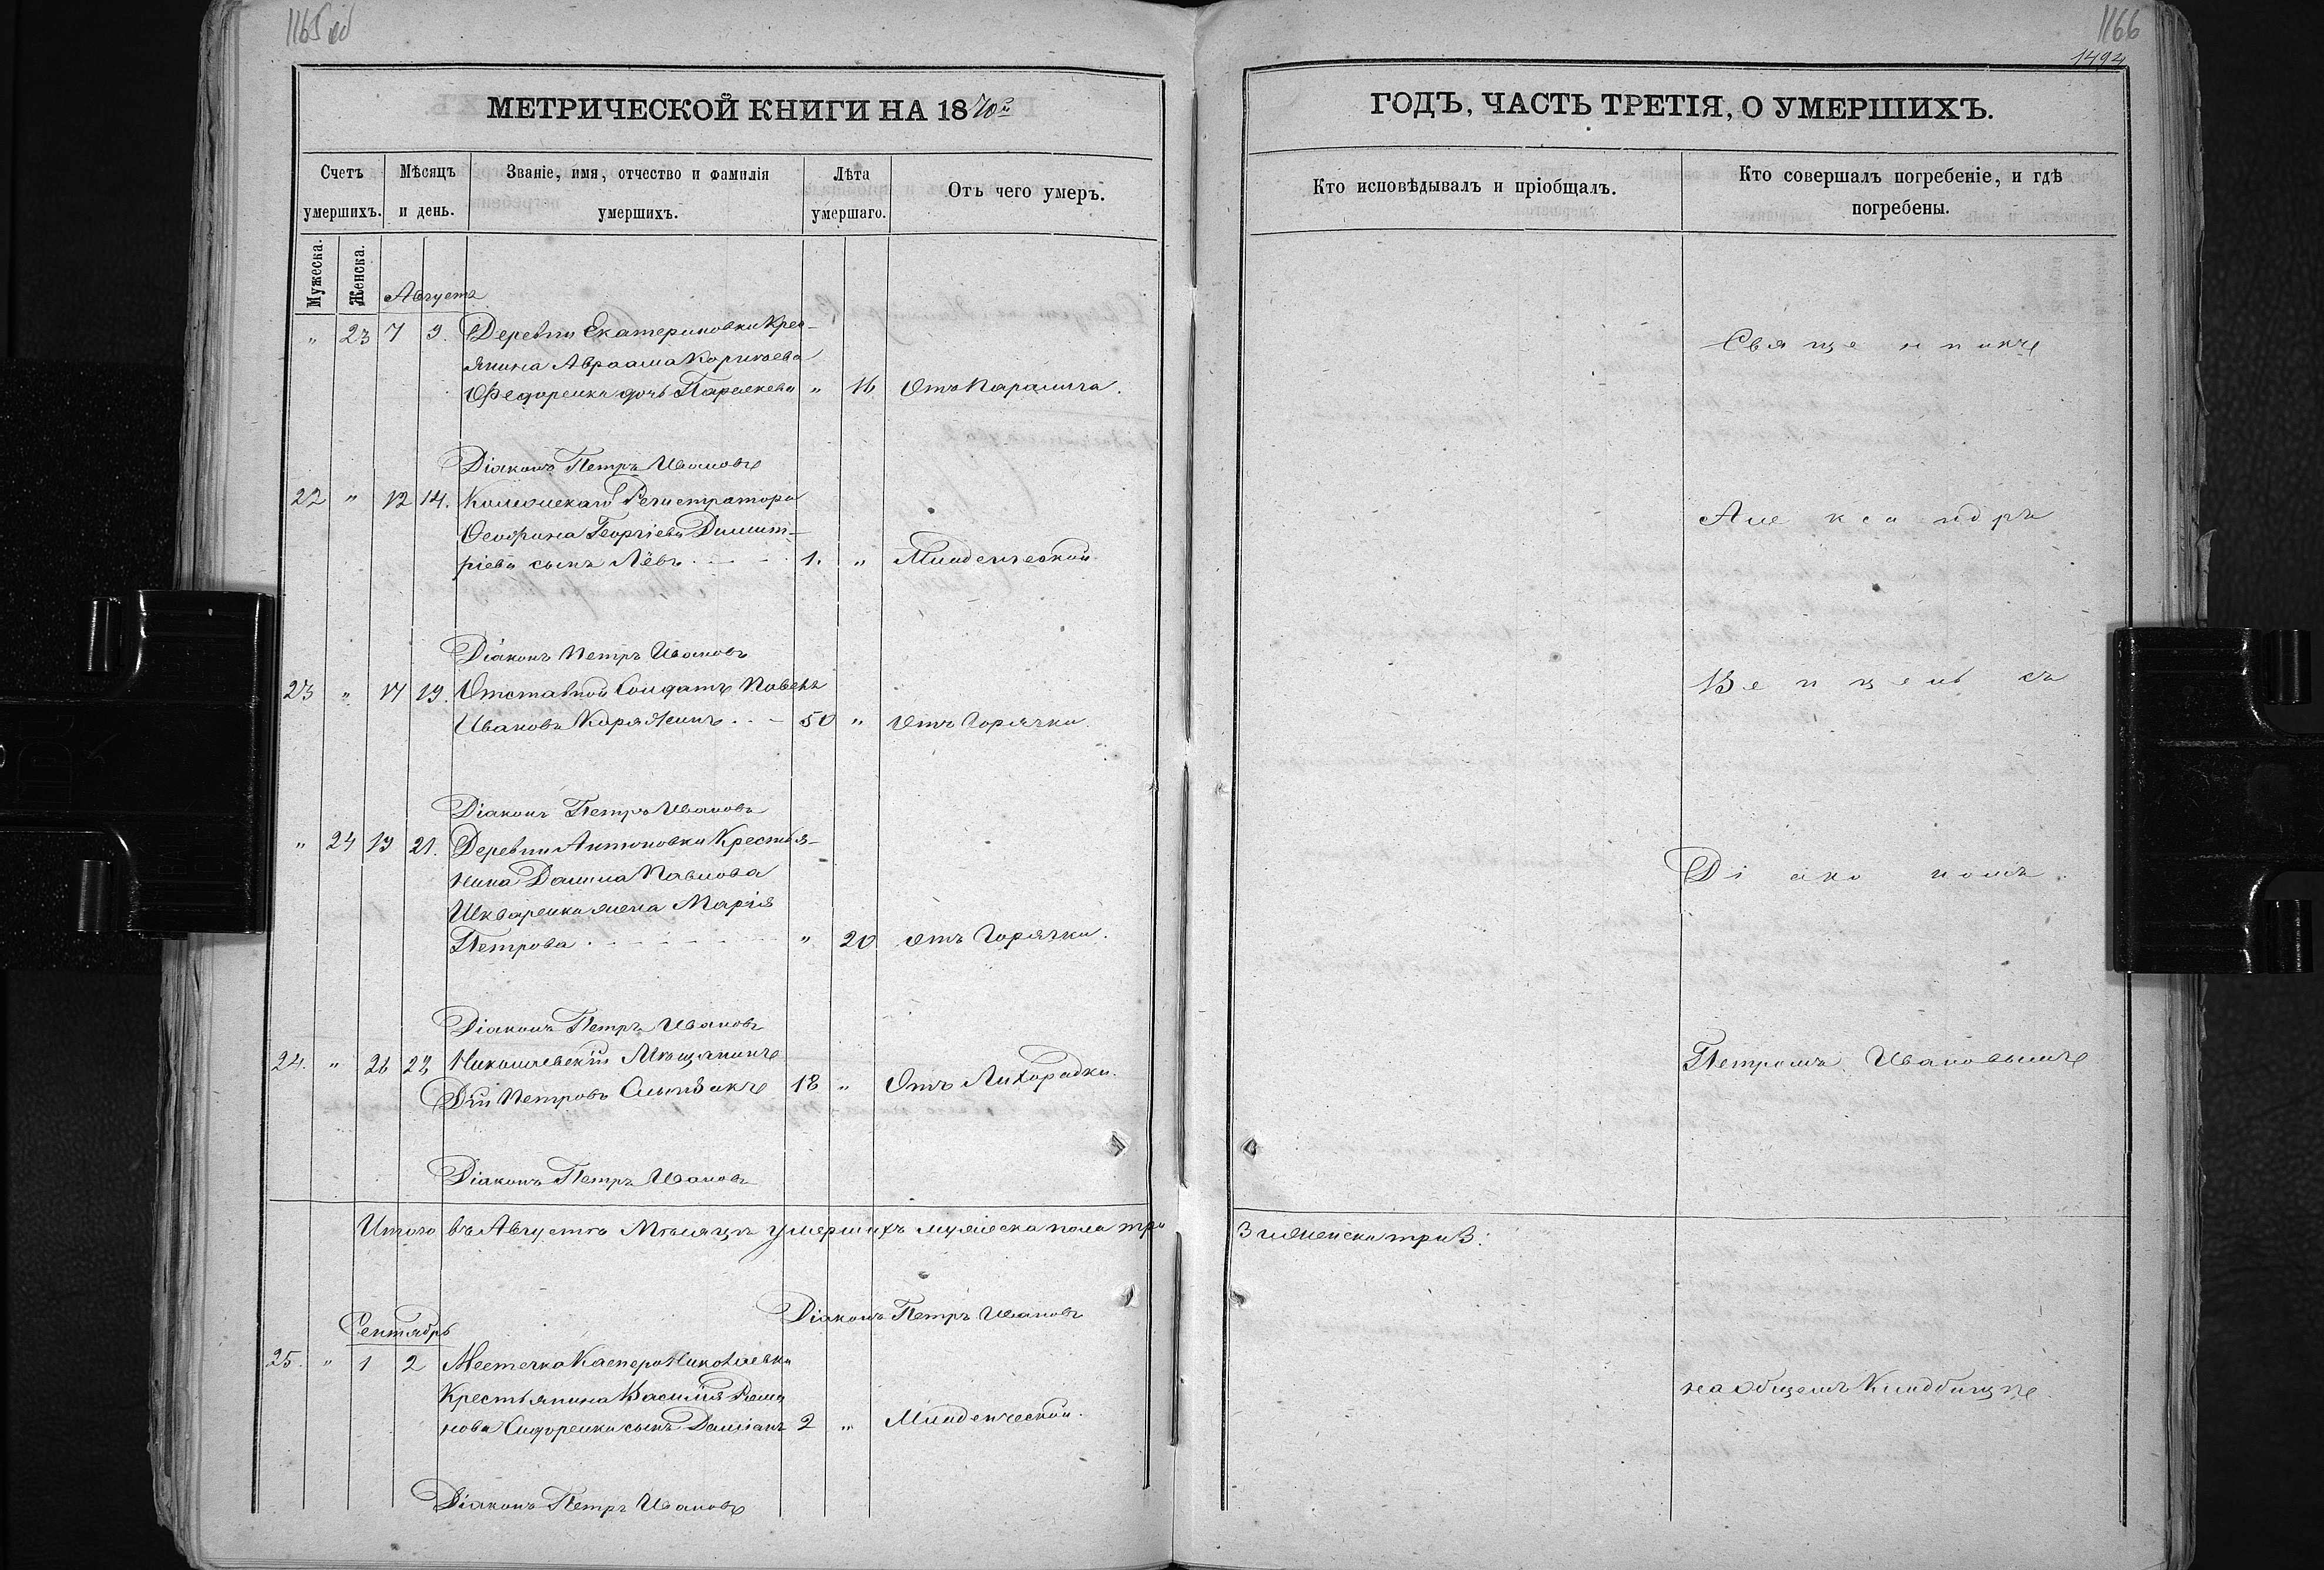 1165 об
1166
1494
МЕТРИЧЕСКОЙ КНИГИ НА 1870й
ГОДЪ, ЧАСТЬ ТРЕТІЯ, О УМЕРШИХЪ.
Счетъ умершихъ.
Мѣсяцъ и день.
Званіе, имя, отчество и фамилія умершихъ.
Лѣта умершаго.
Отъ чего умеръ.
Кто исповѣдывалъ и пріобщалъ.
Кто совершалъ погребеніе, и гдѣ погребены.
Мужеска.
Женска.
Августъ
" 23 7 9. Деревни Екатериновки Крес-
янина Авраама
Федоренка дочь Параскева " 16 Отъ Паралича.
Діаконъ Петръ Ивановъ
22 " 12 14. Коллежскаго Регистратора
Георгіева Димит-
ріева сынъ Лёвъ 1. " Младенческой.
Діаконъ Петръ Ивановъ
23 " 17 19. Отставной Солдатъ Павелъ
Ивановъ Коряжинъ 50 " Отъ Горячки.
Діаконъ Петръ Ивановъ
" 24 19 21. Деревни Антоновки Крестья-
нина Данила Павлова
Шкваренки жена Марія
Петрова " 20 отъ Горячки.
Діаконъ Петръ Ивановъ
24. " 26 28 Николаевскій Мѣщанинъ
Петровъ 18 " Отъ Лихорадки.
Діаконъ Петръ Ивановъ
Итого въ Августѣ Мѣсяцѣ умершихъ мужеска пола три
3 и женска три 3.
Діаконъ Петръ Ивановъ
Сентябрь
25. " 1 2 Местечка Касперо Николаевки
Крестьянина Василія Рома
нова Сидоренки сынъ Даміанъ 2 " Младенческой.
Діаконъ Петръ Ивановъ
Священникъ
Александръ
съ
Діакономъ
Петромъ Ивановымъ
на общемъ Кладбищѣ.